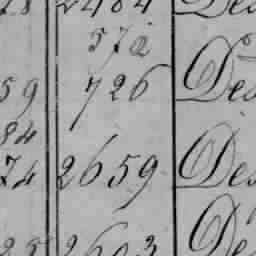 28 2484 Des
572
59 726 Des
84
74 2659 Des
25 2603 Des